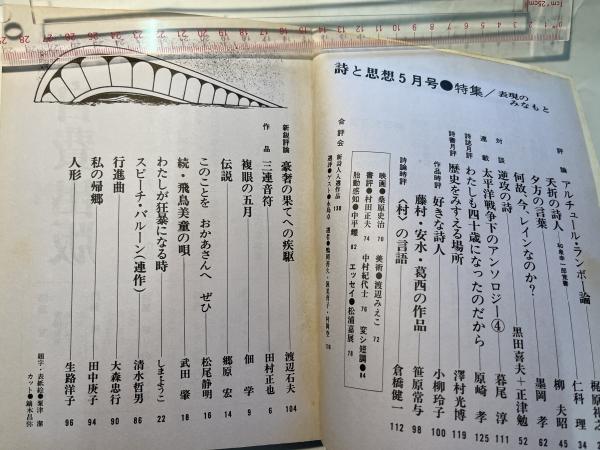 詩と思想5月号●特集/表現のみなもと
評論 アルチュール・ランボー論 梶原禮之
夭折の詩人 仁科 理 34
夕方の言葉 柳 夫昭 45
何故、今、レインなのか? 墨岡 孝 62
対談 逆攻の詩 黒田喜夫+正津勉 52
連載 太平洋戦争下のアンソロジー④ 暮尾 淳 111
詩誌月評 わたしも四十歳になったのだから 原崎 孝 125
詩書月評 歴史をみすえる場所 澤村光博 119
作品時評 好きな詩人 小柳玲子 100
藤村・安水・葛西の作品 笹原常与 98
詩論時評 〈村〉の言語 倉橋健一 112
映画●桑原史治 70 美術●渡辺みえこ 72
書評●村田正夫 74 中村紀代士 76 変シ短調●84
胎動感知●中平耀 82 エッセイ●松浦嘉展 78
合評会 新詩人入選作品 138
新鋭評論 豪奢の果てへの疾駆 渡辺石夫 104
作品 三連音符 田村正也 6
複眼の五月 佃 学 9
伝説 郷原 宏 14
このことを おかあさんへ ぜひ 松尾静明 16
続・飛鳥美童の唄 武田 肇 18
わたしが狂暴になる時 しま・ようこ 22
スピーチ・バルーン(連作) 清水哲男 86
行進曲 大森忠行 90
私の帰郷 田中庚子 94
人形 生路洋子 96
題字・表紙絵●粟津 潔
カット●鏑木昌弥